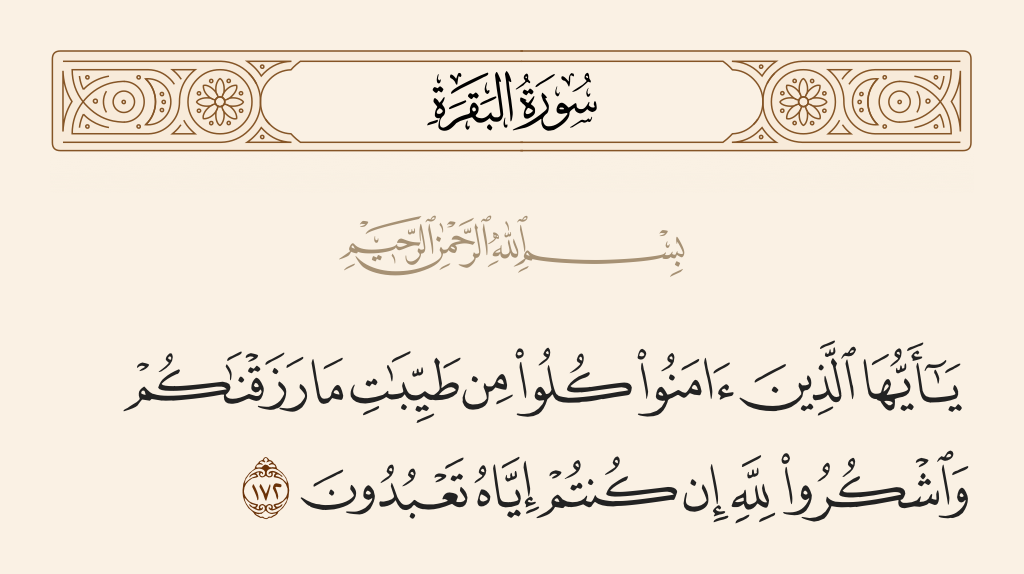 سُورَةُ البَقَرَةِ
بِسْمِ ٱللَّهِ ٱلرَّحْمَٰنِ ٱلرَّحِيمِ
يَـٰٓأَيُّهَا ٱلَّذِينَ ءَامَنُوا۟ كُلُوا۟ مِن طَيِّبَـٰتِ مَا رَزَقْنَـٰكُمْ
وَٱشْكُرُوا۟ لِلَّهِ إِن كُنتُمْ إِيَّاهُ تَعْبُدُونَ ١٧٢